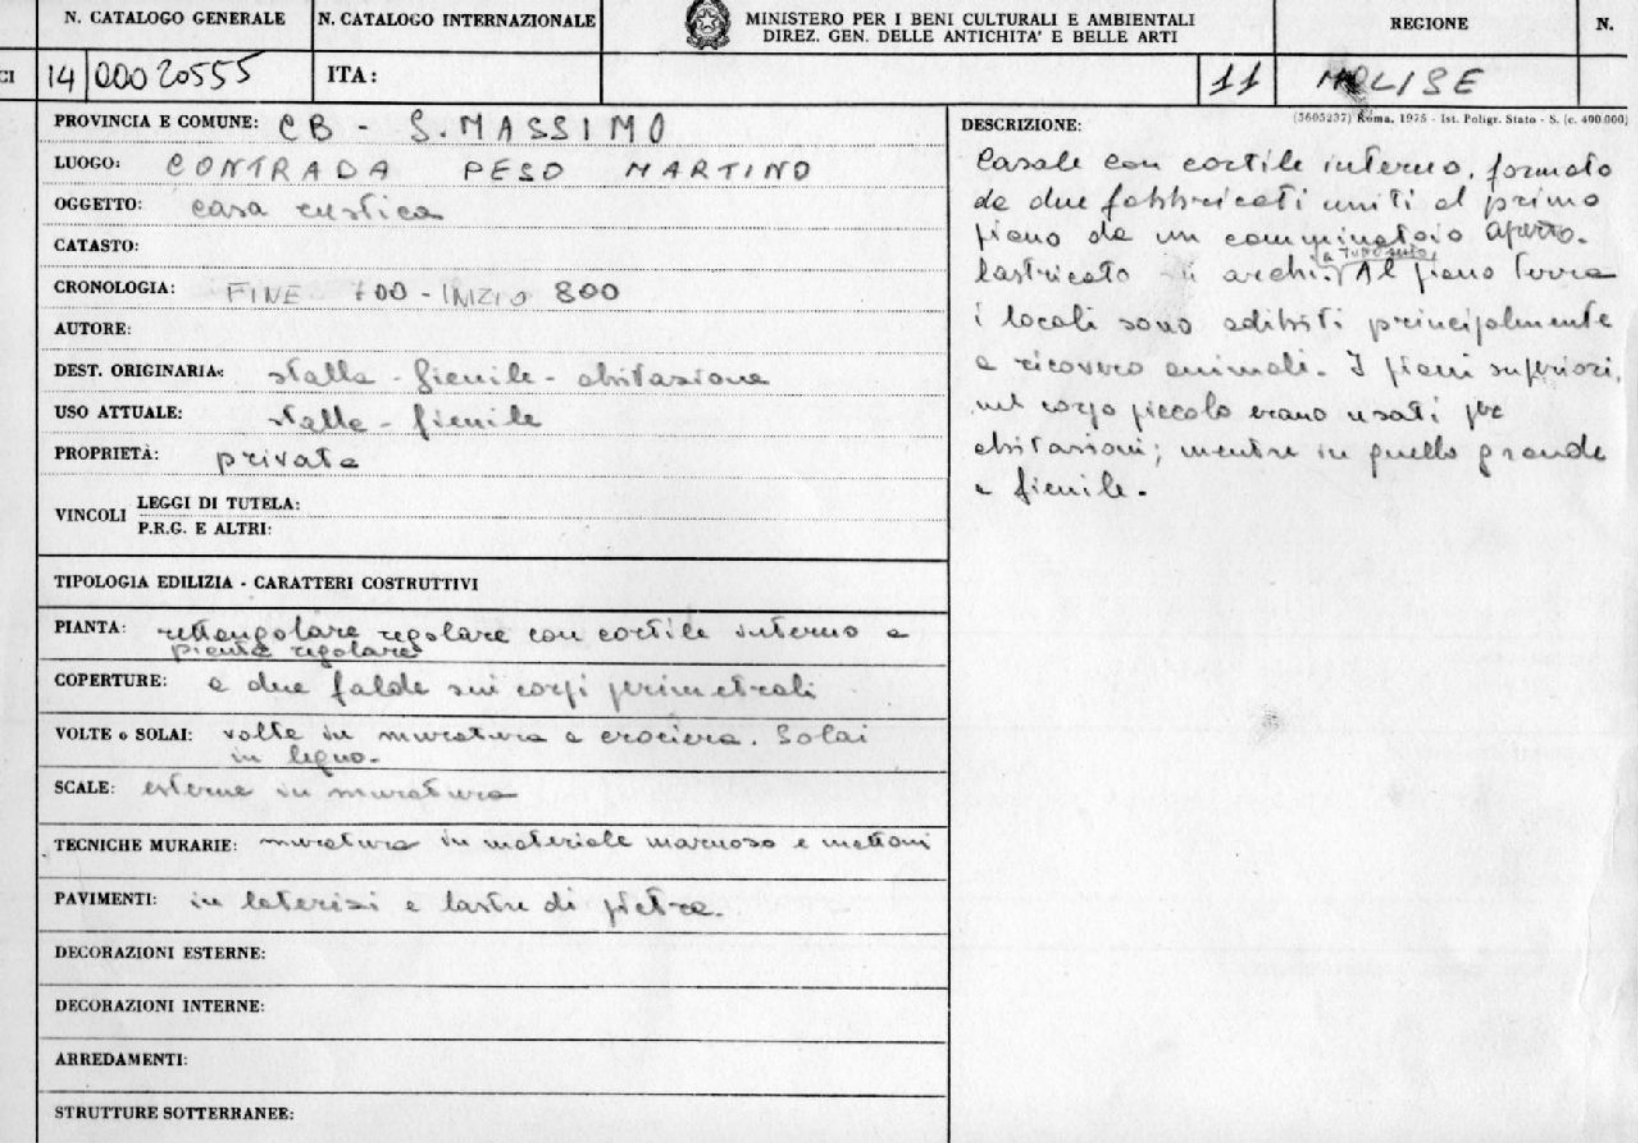 N. CATALOGO GENERALE
N. CATALOGO INTERNAZIONALE
MINISTERO PER I BENI CULTURALI E AMBIENTALI
DIREZ. GEN. DELLE ANTICHITA' E BELLE ARTI
REGIONE
N.
CI
14 00020555
ITA:
11
MOLISE
PROVINCIA E COMUNE: CB - S. MASSIMO
LUOGO: CONTRADA PESO MARTINO
OGGETTO: casa rustica
CATASTO:
CRONOLOGIA: FINE 700 - INIZIO 800
AUTORE:
DEST. ORIGINARIA: stalla - fienile - abitazione
USO ATTUALE: stalla - fienile
PROPRIETÀ: privata
VINCOLI
LEGGI DI TUTELA:
P.R.G. E ALTRI:
TIPOLOGIA EDILIZIA - CARATTERI COSTRUTTIVI
PIANTA: rettangolare regolare con cortile interno a
pianta regolare
COPERTURE: a due falde sui corpi perimetrali
VOLTE o SOLAI: volte in muratura a crociera. Solai
in legno.
SCALE: esterne in muratura
TECNICHE MURARIE: muratura in materiale marnoso e mattoni
PAVIMENTI: in laterizi e lastre di pietra.
DECORAZIONI ESTERNE:
DECORAZIONI INTERNE:
ARREDAMENTI:
STRUTTURE SOTTERRANEE:
(3605237) Roma, 1975 - Ist. Poligr. Stato - S. (c. 400.000)
DESCRIZIONE:
Casale con cortile interno, formato
da due fabbricati uniti al primo
piano da un camminatoio aperto.
a tutto sesto
lastricato archi. Al piano terra
i locali sono adibiti principalmente
a ricovero animali. I piani superiori,
nel corpo piccolo erano usati per
abitazioni; mentre in quello grande
a fienile.